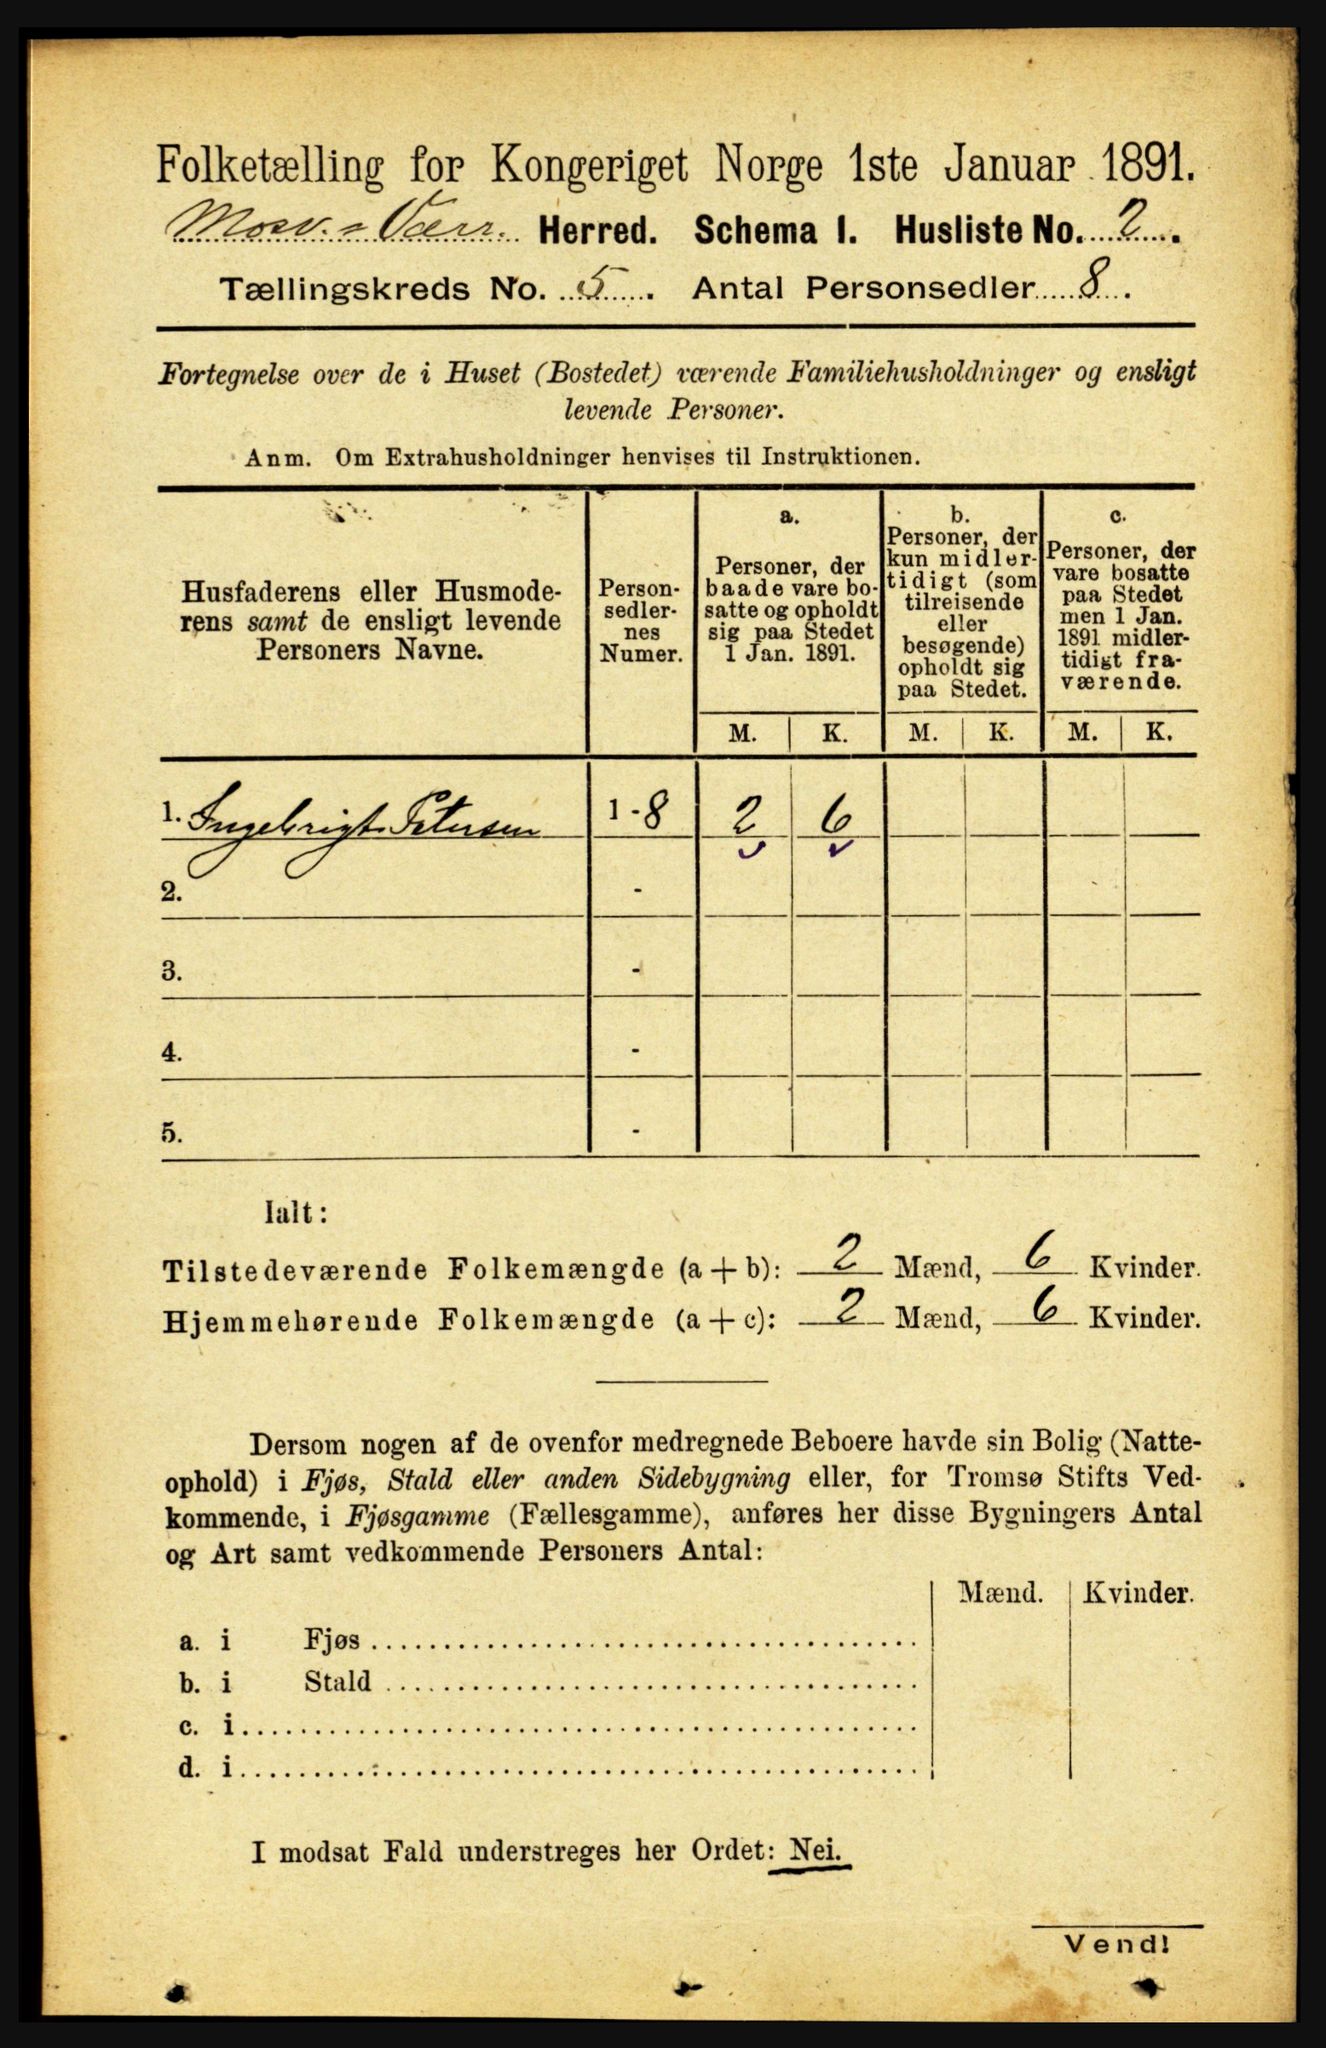 Folketælling for Kongeriget Norge 1ste Januar 1891.
Mosv. o Værr. Herred. Schema I. Husliste No. 2.
Tællingskreds No. 5. Antal Personsedler 8.
Fortegnelse over de i Huset (Bostedet) værende Familiehusholdninger og ensligt
levende Personer.
Anm. Om Extrahusholdninger henvises til Instruktionen.
Husfaderens eller Husmode-
rens samt de ensligt levende
Personers Navne.
Person-
sedler-
nes
Numer.
a.
Personer, der
baade vare bo-
satte og opholdt
sig paa Stedet
1 Jan. 1891.
b.
Personer, der
kun midler-
tidigt (som
tilreisende
eller
besøgende)
opholdt sig
paa Stedet.
c.
Personer, der
vare bosatte
paa Stedet
men 1 Jan.
1891 midler-
tidigt fra-
værende.
M. K. M. K. M. K.
1. Ingebrigt Petersen 1 - 8 2 6
2. -
3. -
4. -
5. -
Ialt:
Tilstedeværende Folkemængde (a + b): 2 Mænd, 6 Kvinder.
Hjemmehørende Folkemængde (a + c): 2 Mænd, 6 Kvinder.
Dersom nogen af de ovenfor medregnede Beboere havde sin Bolig (Natte-
ophold) i Fjøs, Stald eller anden Sidebygning eller, for Tromsø Stifts Ved-
kommende, i Fjøsgamme (Fællesgamme), anføres her disse Bygningers Antal
og Art samt vedkommende Personers Antal:
Mænd. Kvinder.
a. i Fjøs
b. i Stald
c. i
d. i
I modsat Fald understreges her Ordet: Nei.
Vend!